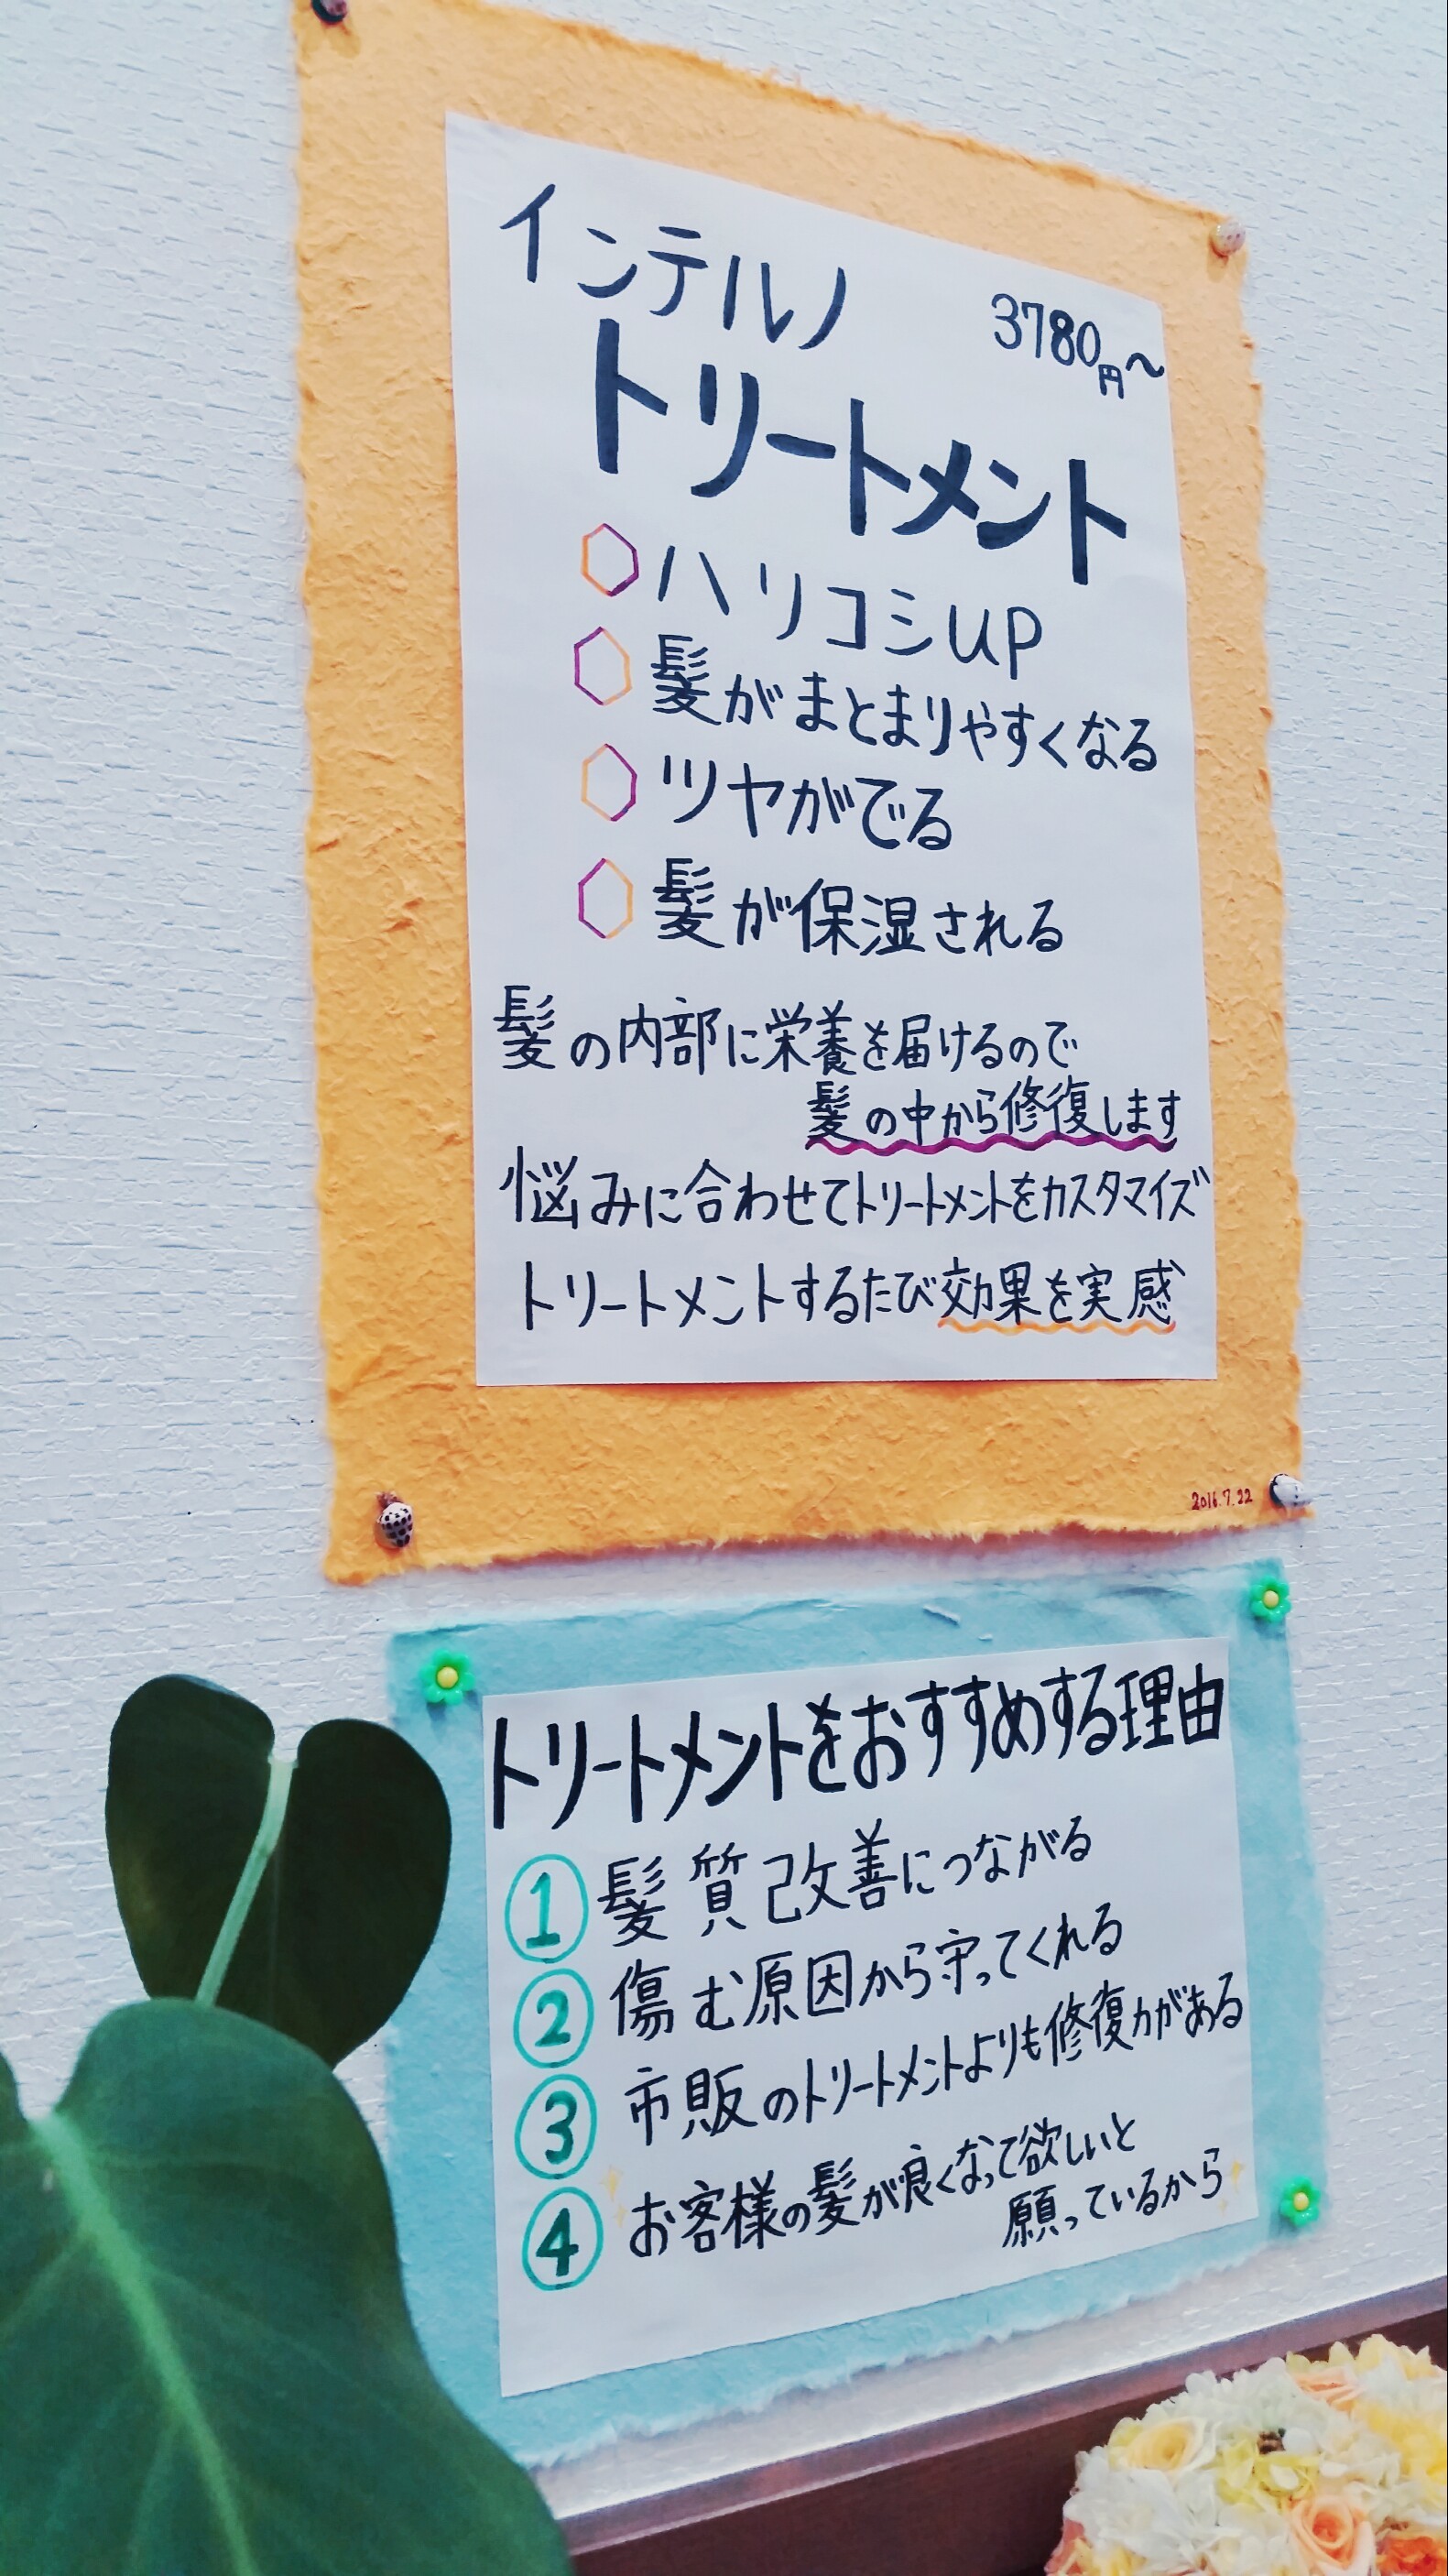 インテルノ
3780円~
トリートメント
ハリコシUP
髪がまとまりやすくなる
ツヤがでる
髪が保湿される
髪の内部に栄養を届けるので
髪の中から修復します
悩みに合わせてトリートメントをカスタマイズ
トリートメントするたび効果を実感
2016.7.22
トリートメントをおすすめする理由
① 髪質改善につながる
② 傷む原因から守ってくれる
③ 市販のトリートメントよりも修復力がある
④ お客様の髪が良くなって欲しいと
願っているから